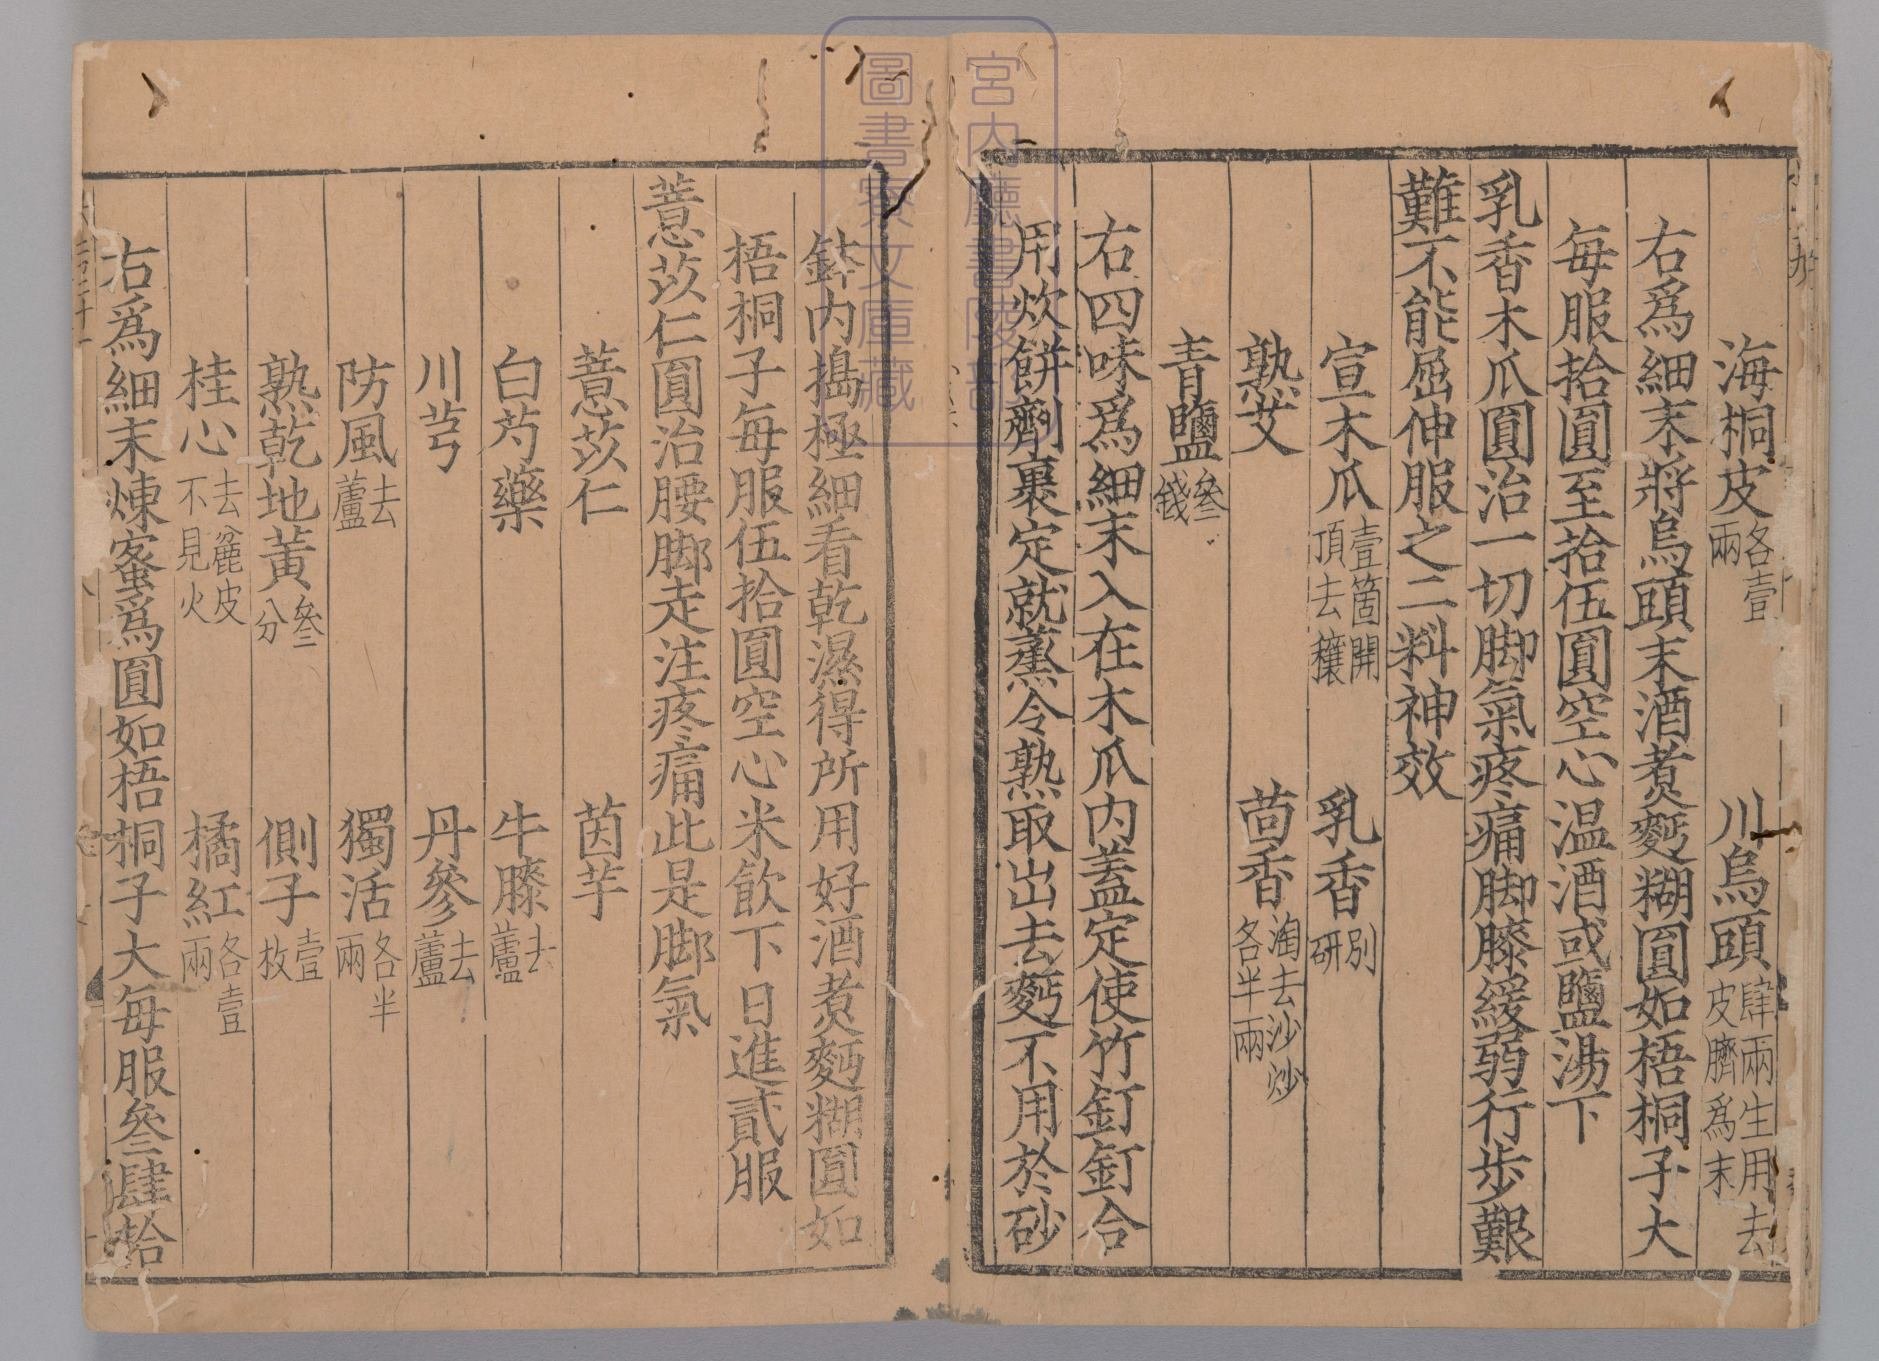 海桐皮各壹兩　川烏頭肆兩生用去皮臍爲末
右爲細末將烏頭末酒煑麪糊圓如梧桐子大
每服拾圓至拾伍圓空心温酒或鹽湯下
乳香木瓜圓治一切脚氣疼痛脚膝緩弱行步艱
難不能屈伸服之二料神效
宣木瓜壹箇開頂去穰　乳香別研
熟艾　茴香淘去沙炒各半兩
青鹽叄錢
右四味爲細末入在木瓜内蓋定使竹釘釘合
用炊餅劑裹定就蒸令熟取出去麪不用於砂
鉢内搗極細看乾濕得所用好酒煑麪糊圓如
梧桐子每服伍拾圓空心米飲下日進貳服
薏苡仁圓治腰脚走注疼痛此是脚氣
薏苡仁　茵芋
白芍藥　牛膝去蘆
川芎　丹參去蘆
防風去蘆　獨活各半兩
熟乾地黄叄分　側子壹枚
桂心去麄皮不見火　橘紅各壹兩
右爲細末煉蜜爲圓如梧桐子大每服叄肆拾
宮内廳書陵部
圖書寮文庫藏